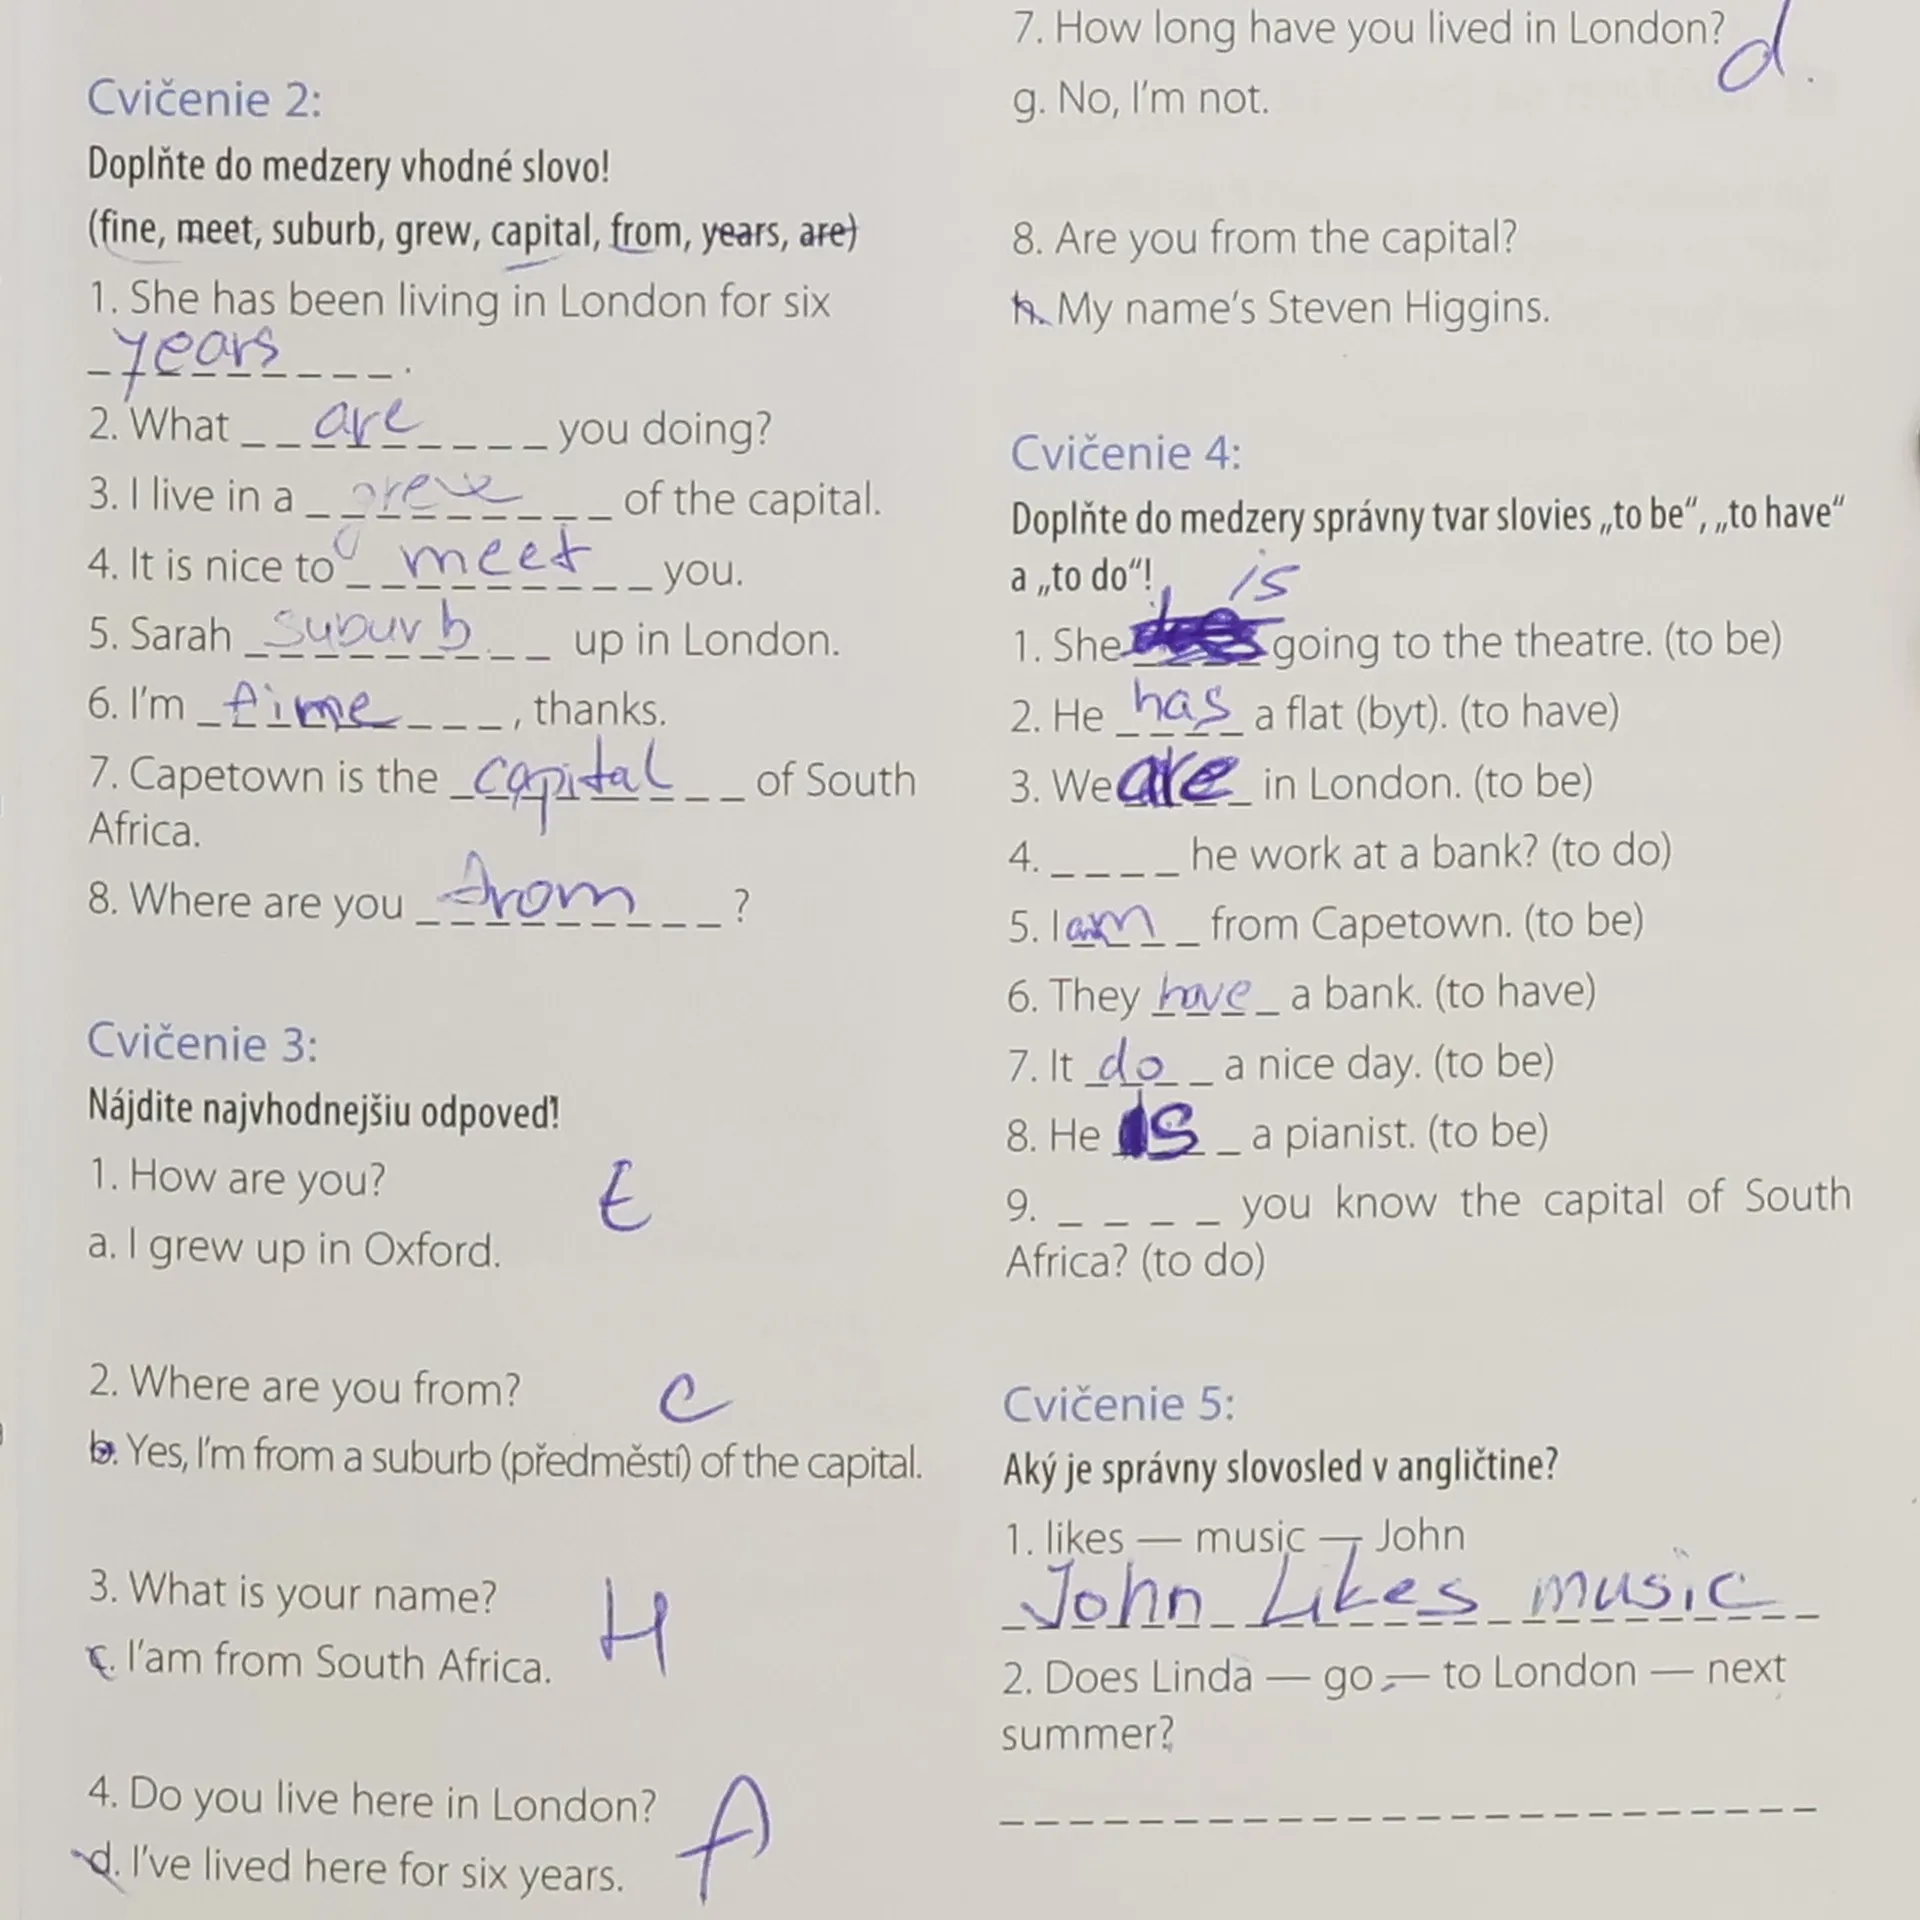 Cvičenie 2:
Doplňte do medzery vhodné slovo!
(fine, meet, suburb, grew, capital, from, years, are)
1. She has been living in London for six
years.
2. What are you doing?
3. I live in a grew of the capital.
4. It is nice to meet you.
5. Sarah suburb up in London.
6. I'm fime, thanks.
7. Capetown is the capital of South
Africa.
8. Where are you from?
Cvičenie 3:
Nájdite najvhodnejšiu odpoveď!
1. How are you? E
a. I grew up in Oxford.
2. Where are you from? C
b. Yes, I'm from a suburb (předměstí) of the capital.
3. What is your name? H
c. I'am from South Africa.
4. Do you live here in London? A
d. I've lived here for six years.
7. How long have you lived in London? d.
g. No, I'm not.
8. Are you from the capital?
h. My name's Steven Higgins.
Cvičenie 4:
Doplňte do medzery správny tvar slovies „to be“, „to have“
a „to do“!
1. She is going to the theatre. (to be)
2. He has a flat (byt). (to have)
3. We are in London. (to be)
4. _ _ _ _ he work at a bank? (to do)
5. I am from Capetown. (to be)
6. They have a bank. (to have)
7. It do a nice day. (to be)
8. He is a pianist. (to be)
9. _ _ _ _ you know the capital of South
Africa? (to do)
Cvičenie 5:
Aký je správny slovosled v angličtine?
1. likes — music — John
John Likes music
2. Does Linda — go — to London — next
summer?